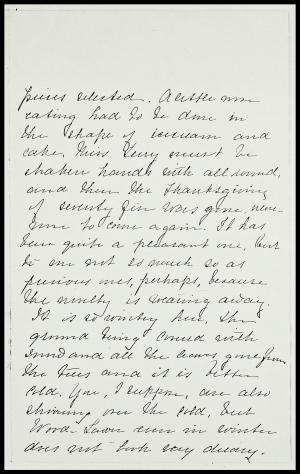 pieces selected. A little more
eating had to be done in
the shape of icecream and
cake, Miss Terry must be
shaken hands with all round,
and then the Thanksgiving
of seventy five was gone, never
more to come again. It has
been quite a pleasant one, but
to me not so much so as
previous ones, perhaps, because
the novelty is wearing away.
It is so wintry here, the
ground being covered with
snow and all the leaves gone from
the trees and it is bitter
cold. You, I suppose, are also
shivering over the cold, but
Wood Lawn even in winter
does not look very dreary.